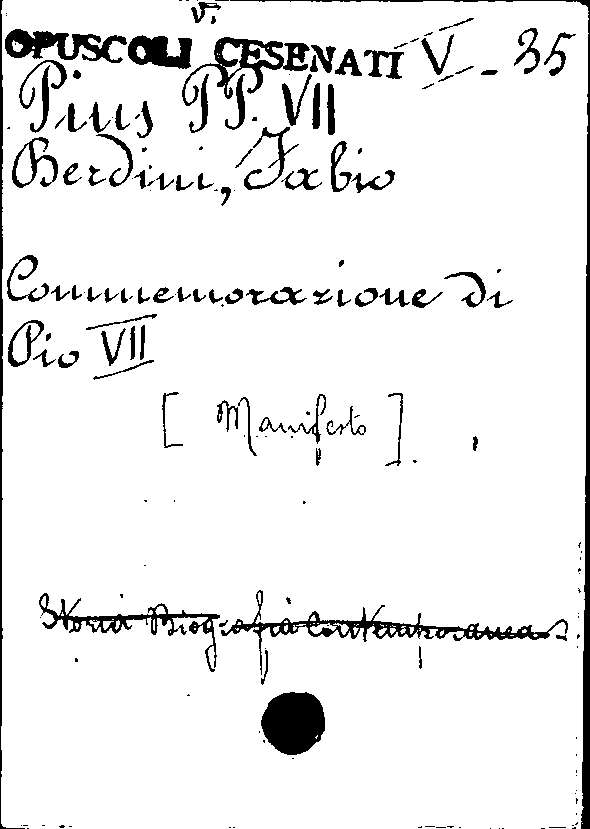 v.
OPUSCOLI CESENATI V - 35
Pius PP. VII
Berdini, Fabio
Commemorazione di
Pio VII
[ Manifesto ].
Storia Biografia Contemporanea